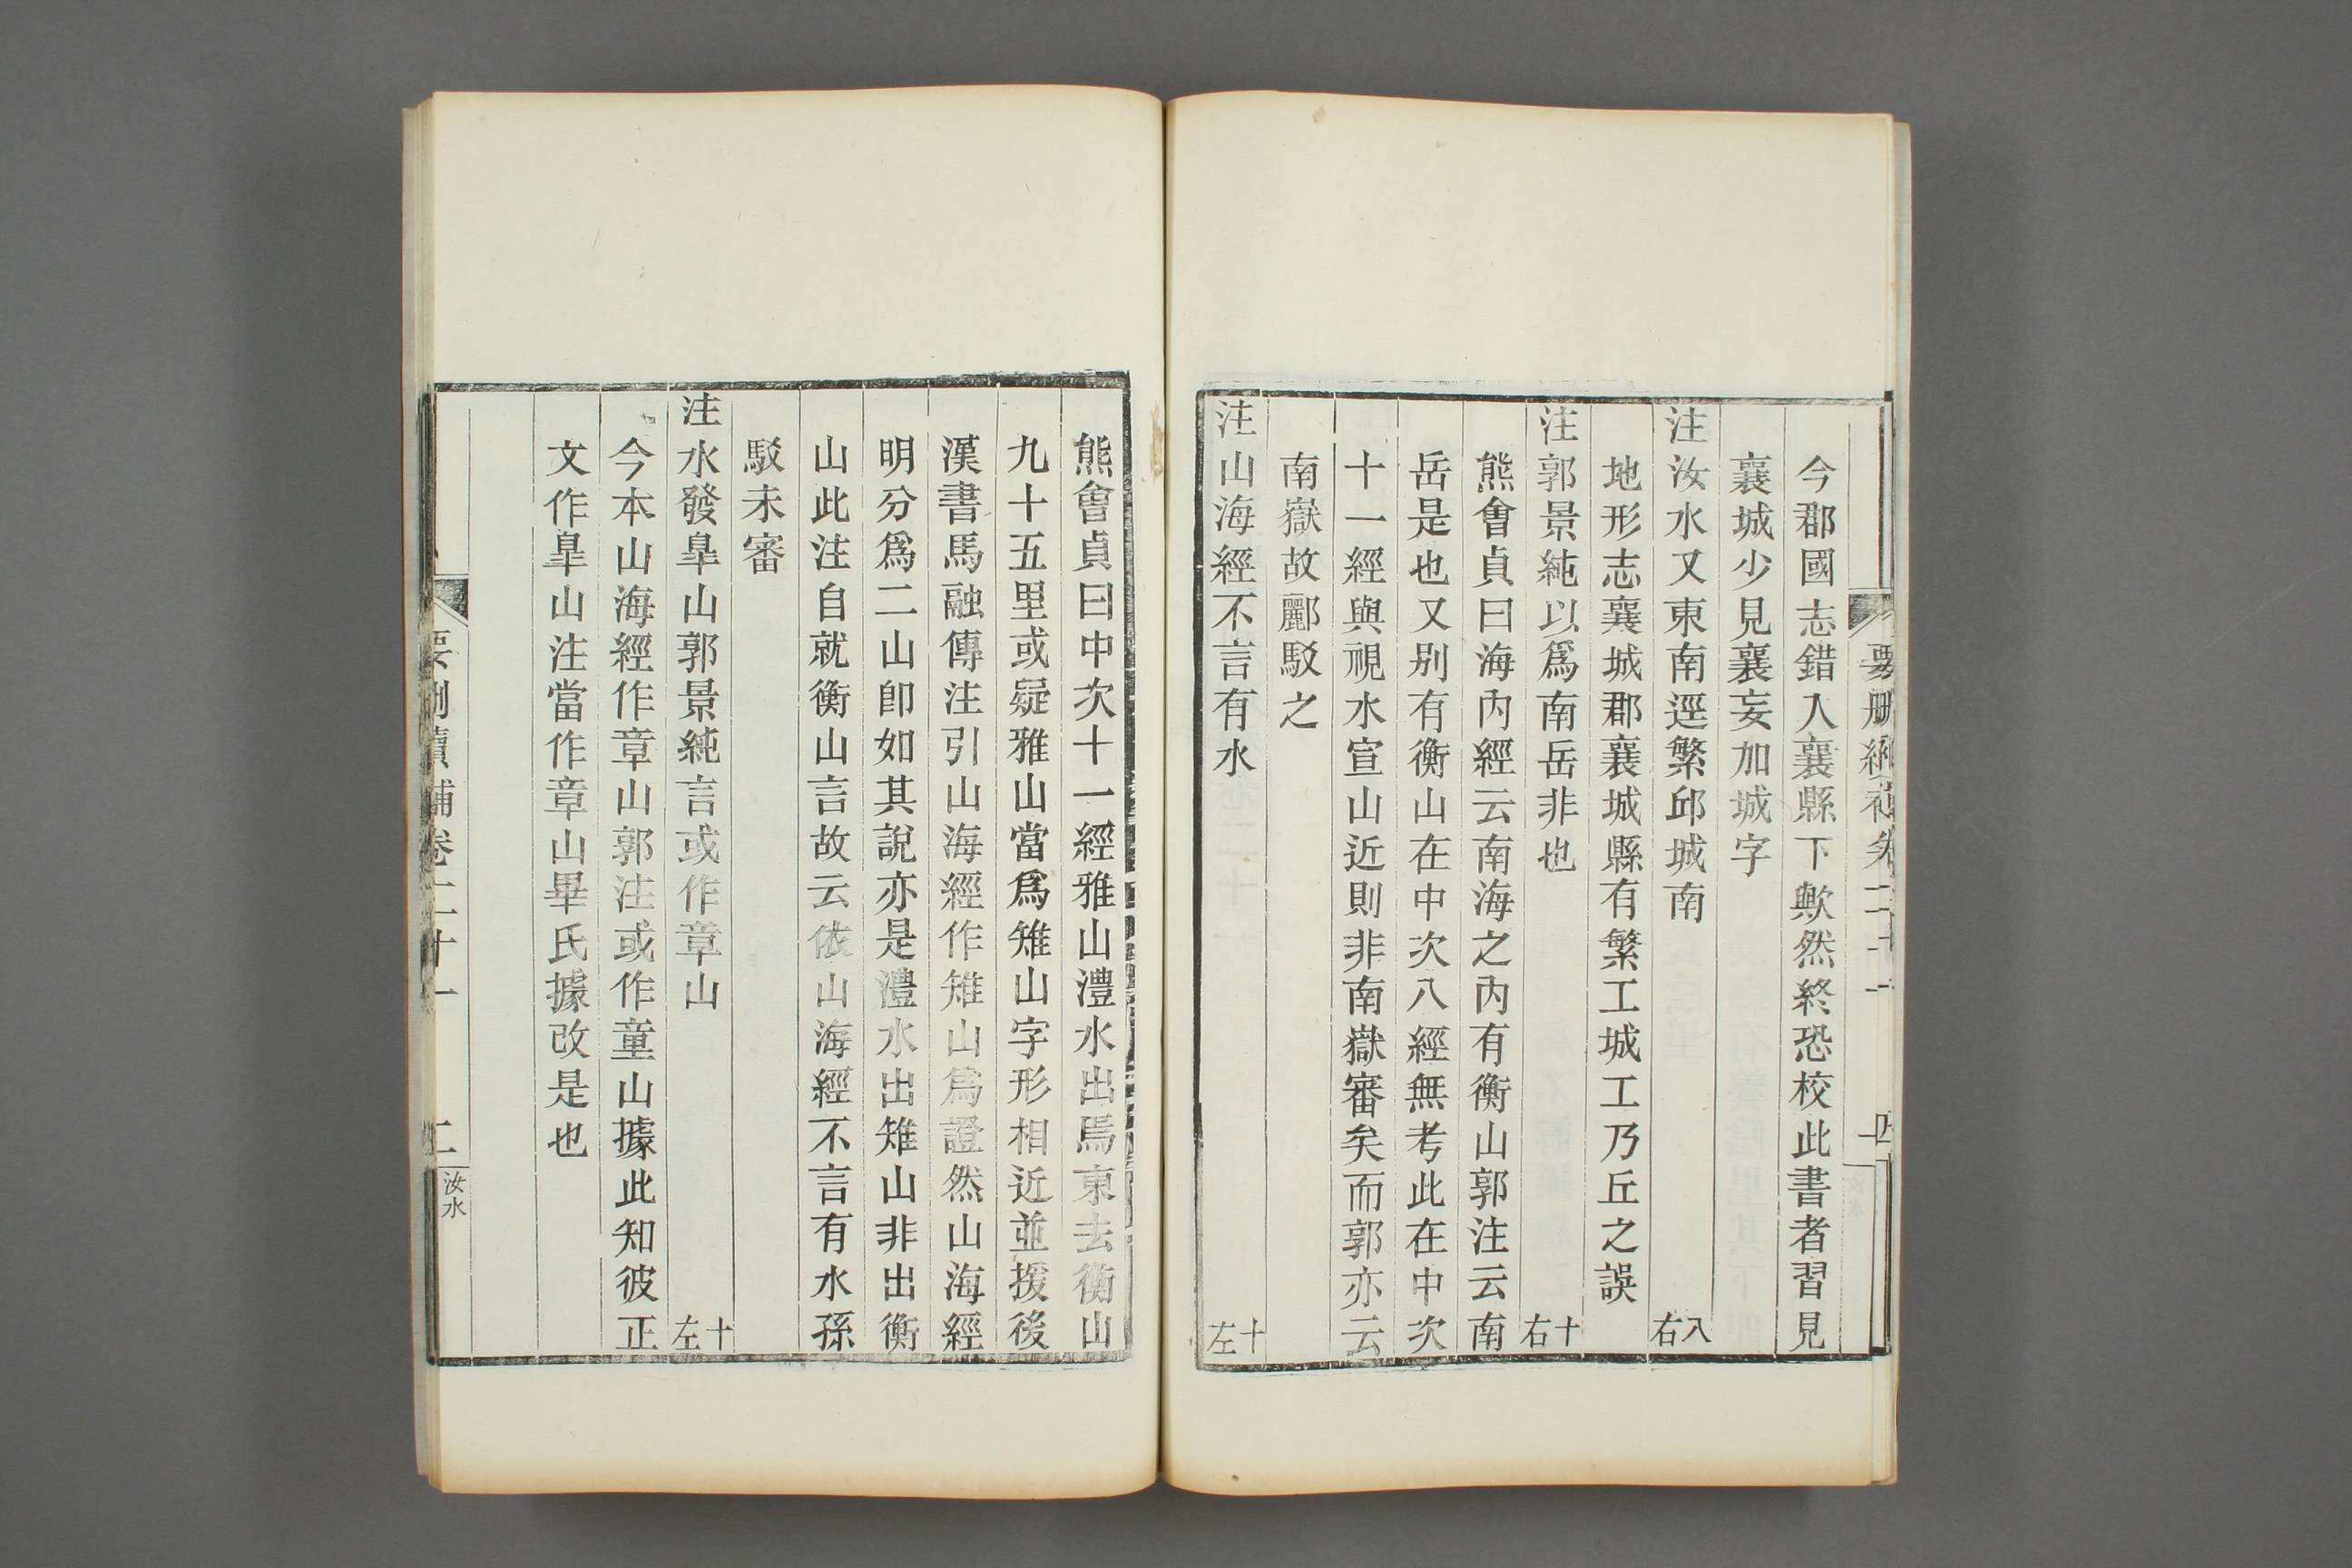 今郡國志錯入襄縣下歟然終恐校此書者習見
襄城少見襄妄加城字
注汝水又東南逕繁邱城南 八右
地形志襄城郡襄城縣有繁工城工乃丘之誤
注郭景純以爲南岳非也 十右
熊會貞曰海內經云南海之內有衡山郭注云南
岳是也又别有衡山在中次八經無考此在中次
十一經與視水宣山近則非南嶽審矣而郭亦云
南嶽故酈駁之
注山海經不言有水 十左
熊會貞曰中次十一經雅山澧水出焉東去衡山
九十五里或疑雅山當爲雉山字形相近並援後
漢書馬融傳注引山海經作雉山爲證然山海經
明分爲二山卽如其說亦是澧水出雉山非出衡
山此注自就衡山言故云依山海經不言有水孫
駁未審
注水發皐山郭景純言或作章山 十左
今本山海經作章山郭注或作童山據此知彼正
文作皐山注當作章山畢氏據改是也
要刪續補卷二十一 二 汝水